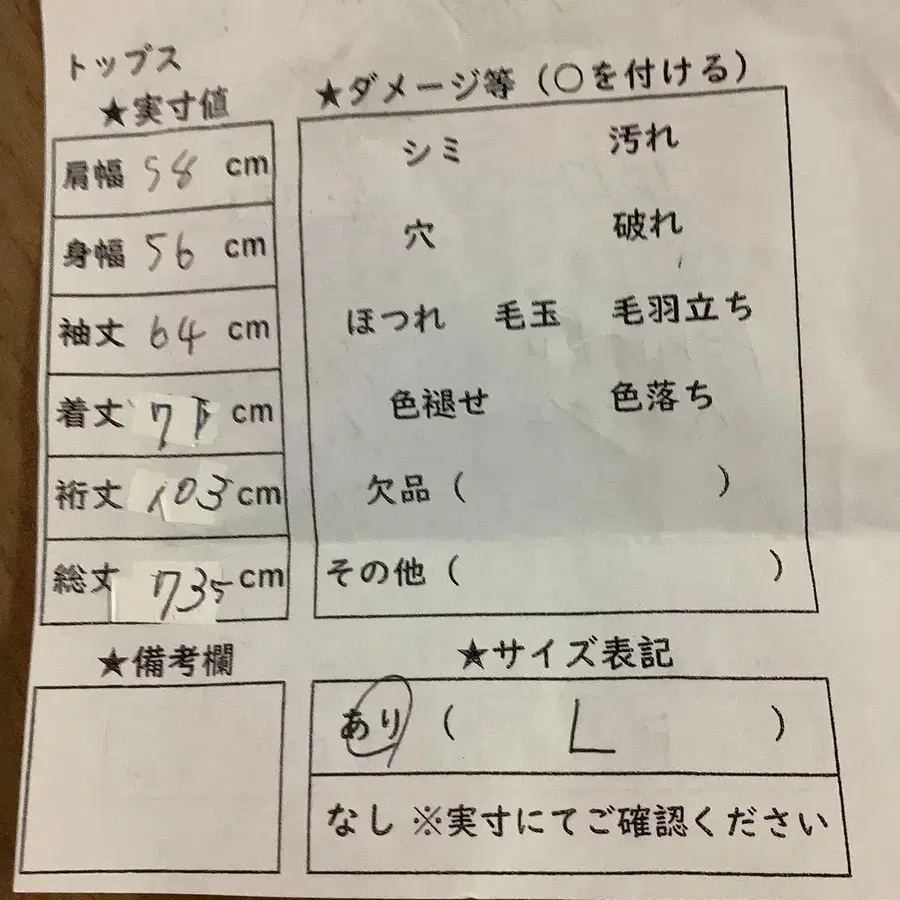 トップス
★実寸値
肩幅 58 cm
身幅 56 cm
袖丈 64 cm
着丈 71 cm
裄丈 103 cm
総丈 735 cm
★ダメージ等(○を付ける)
シミ 汚れ
穴 破れ
ほつれ 毛玉 毛羽立ち
色褪せ 色落ち
欠品( )
その他( )
★備考欄
★サイズ表記
あり( L )
なし ※実寸にてご確認ください